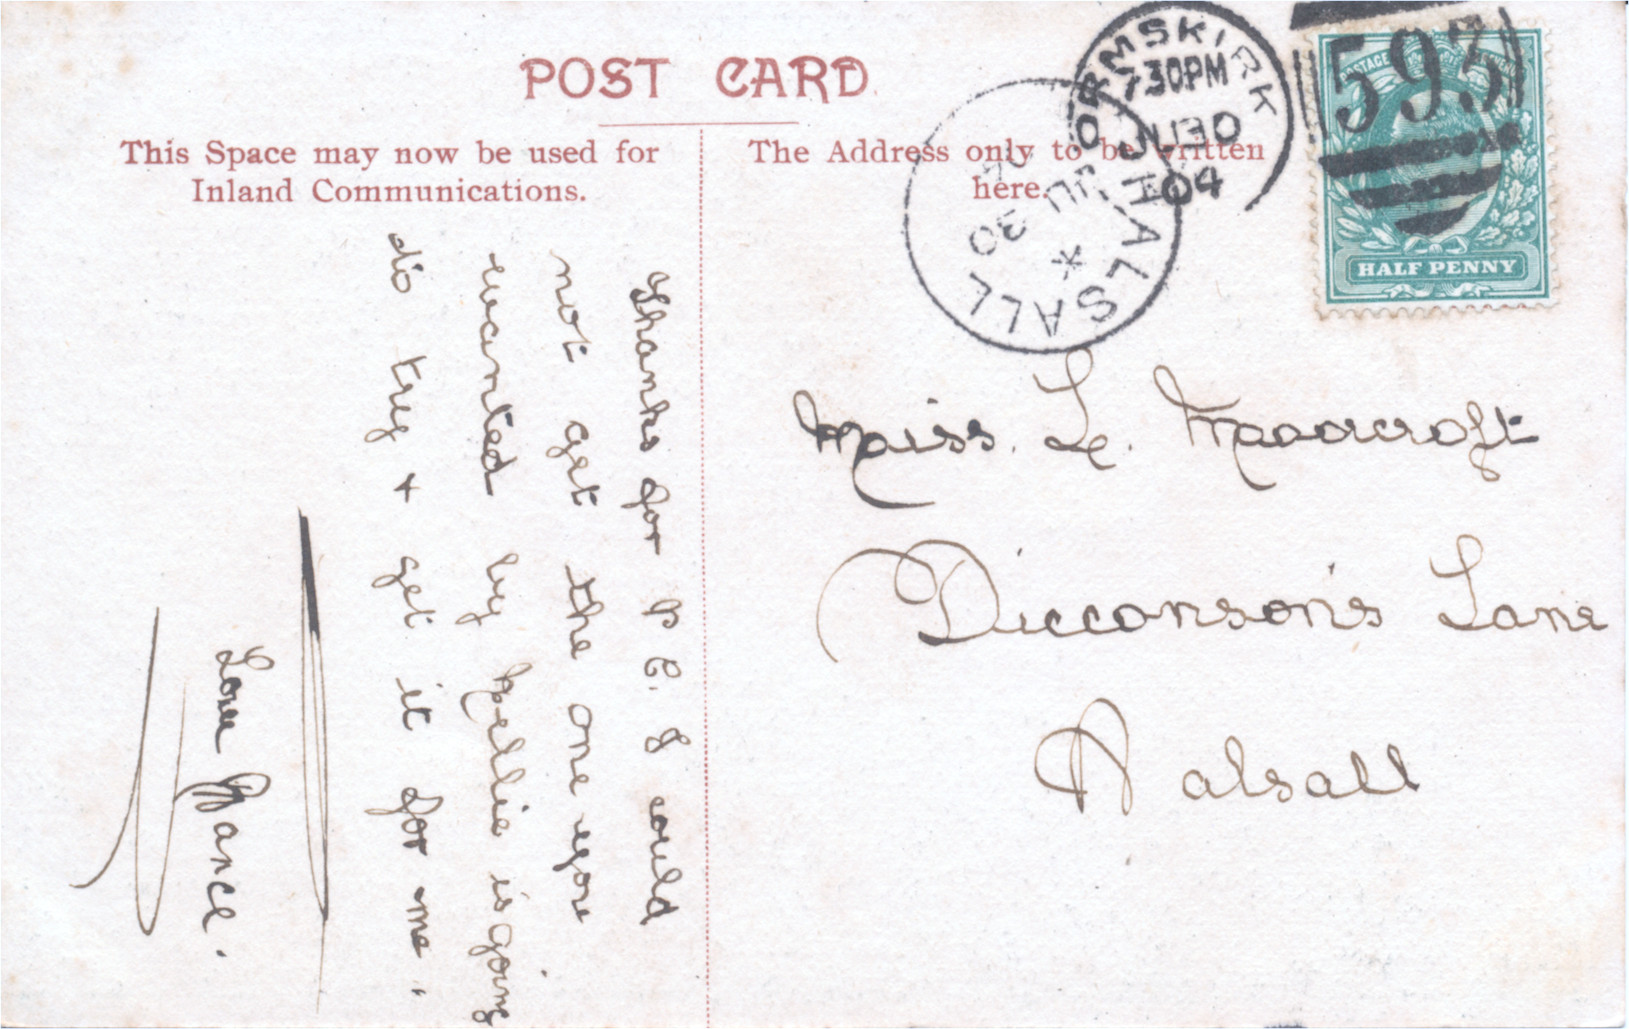 POST CARD
This Space may now be used for
Inland Communications.
The Address only to be written
here.
ORMSKIRK
7.30PM
JU 30
04
593
HALF PENNY
HALSALL
JU 30
04
Miss. L. Moorcroft
Dicconson's Lane
Halsall
Thanks for P C. I could
not get the one you
wanted by Nellie is going
to try + get it for me.
Love